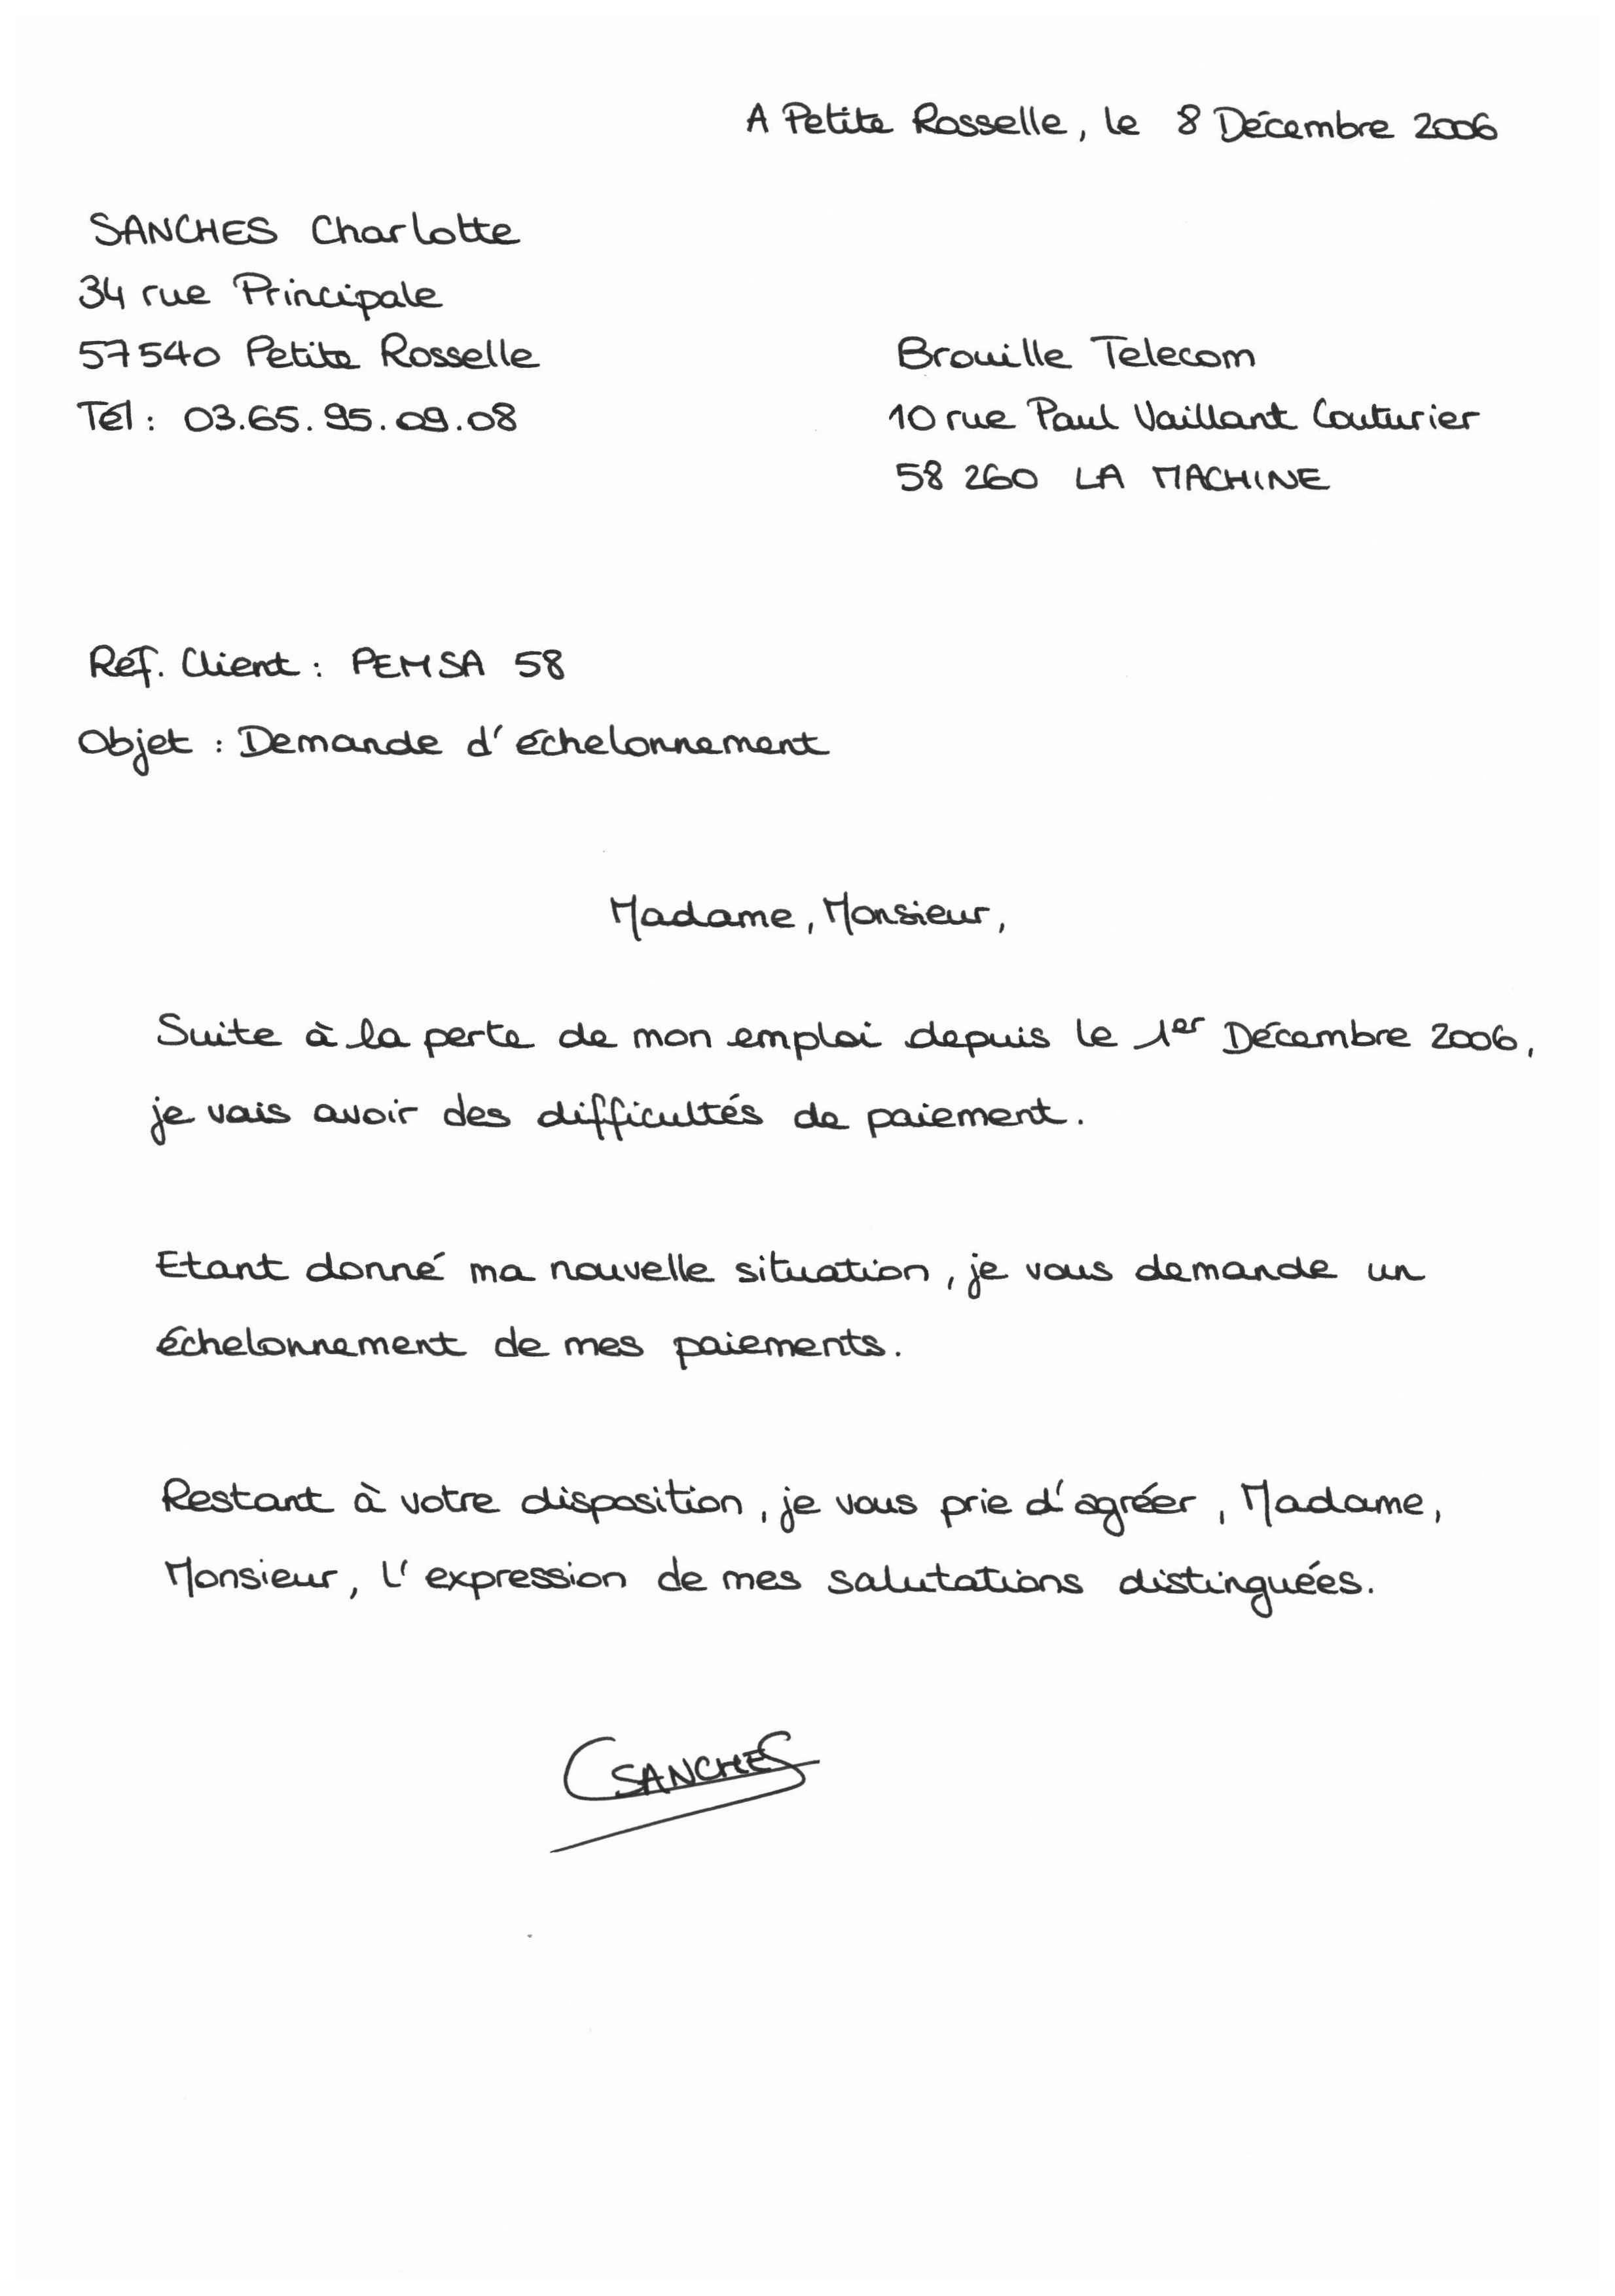 A Petite Rosselle, le 8 Décembre 2006
SANCHES Charlotte
34 rue Principale
57540 Petite Rosselle
Tél : 03.65.95.09.08
Brouille Telecom
10 rue Paul Vaillant Couturier
58 260 LA MACHINE
Réf. Client : PEMSA 58
Objet : Demande d'échelonnement
Madame, Monsieur,
Suite à la perte de mon emploi depuis le 1er Décembre 2006,
je vais avoir des difficultés de paiement.
Etant donné ma nouvelle situation, je vous demande un
échelonnement de mes paiements.
Restant à votre disposition, je vous prie d'agréer, Madame,
Monsieur, l'expression de mes salutations distinguées.
CSANCHES